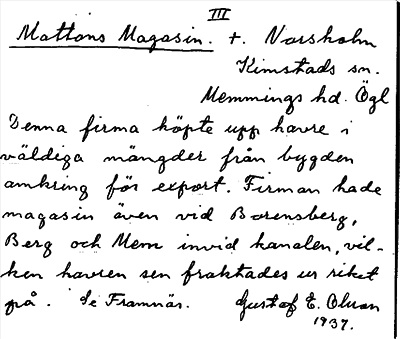 III
Mattons Magasin. t. Norsholm
Kimstads sn.
Memmings hd. Ögl
Denna firma köpte upp havre i
väldiga mängder från bygden
omkring för export. Firman hade
magasin även vid Borensberg,
Berg och Mem invid kanalen, vil-
ken havren sen fraktades ur riket
på. Se Framnäs. Gustaf E. Olsson
1937.